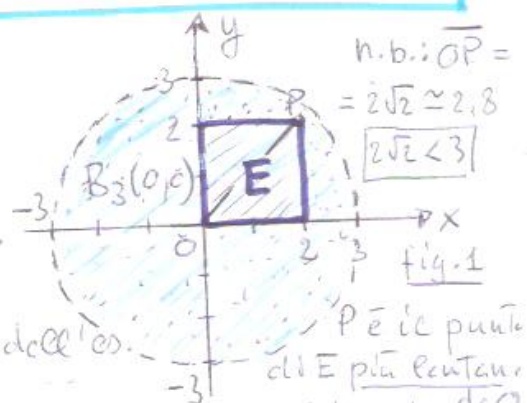 y
n.b.: OP =
= 2√2 ≃ 2,8
2√2 < 3
3
P
2
B₃(0,0)
E
-3
0
2
3
x
fig.1
dell'es.
P è il punto
di E più
-3